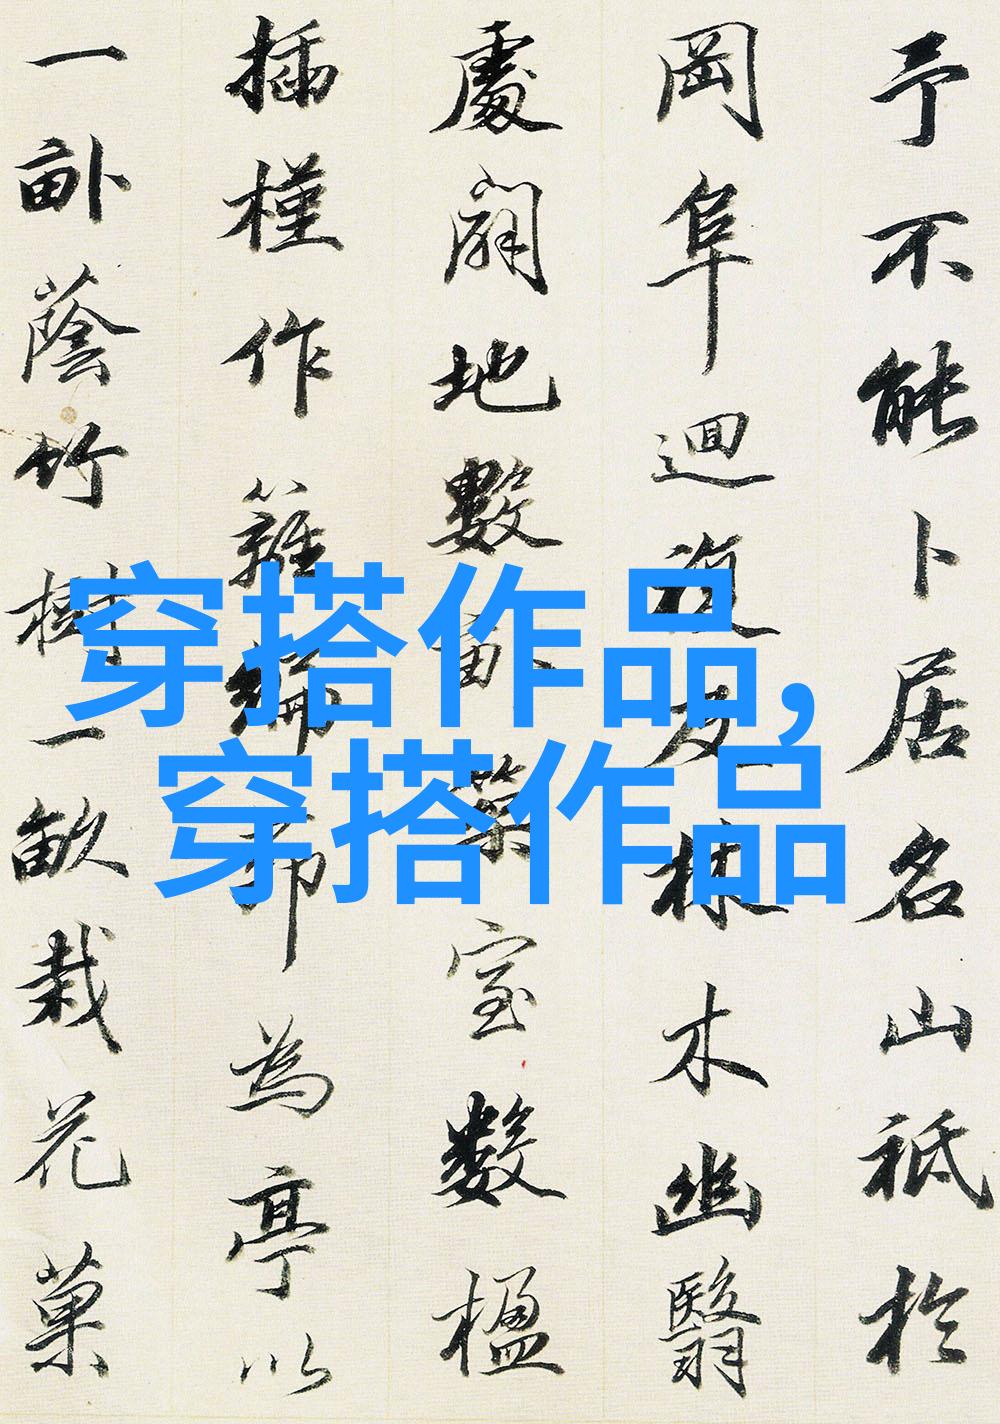 予不能卜居名山祗於
岡阜迴復及林木幽翳
處闢地數畝築室數楹
插槿作籬編茆為亭以
一畝蔭竹樹一畝栽花菓
穿搭作品,
穿搭作品